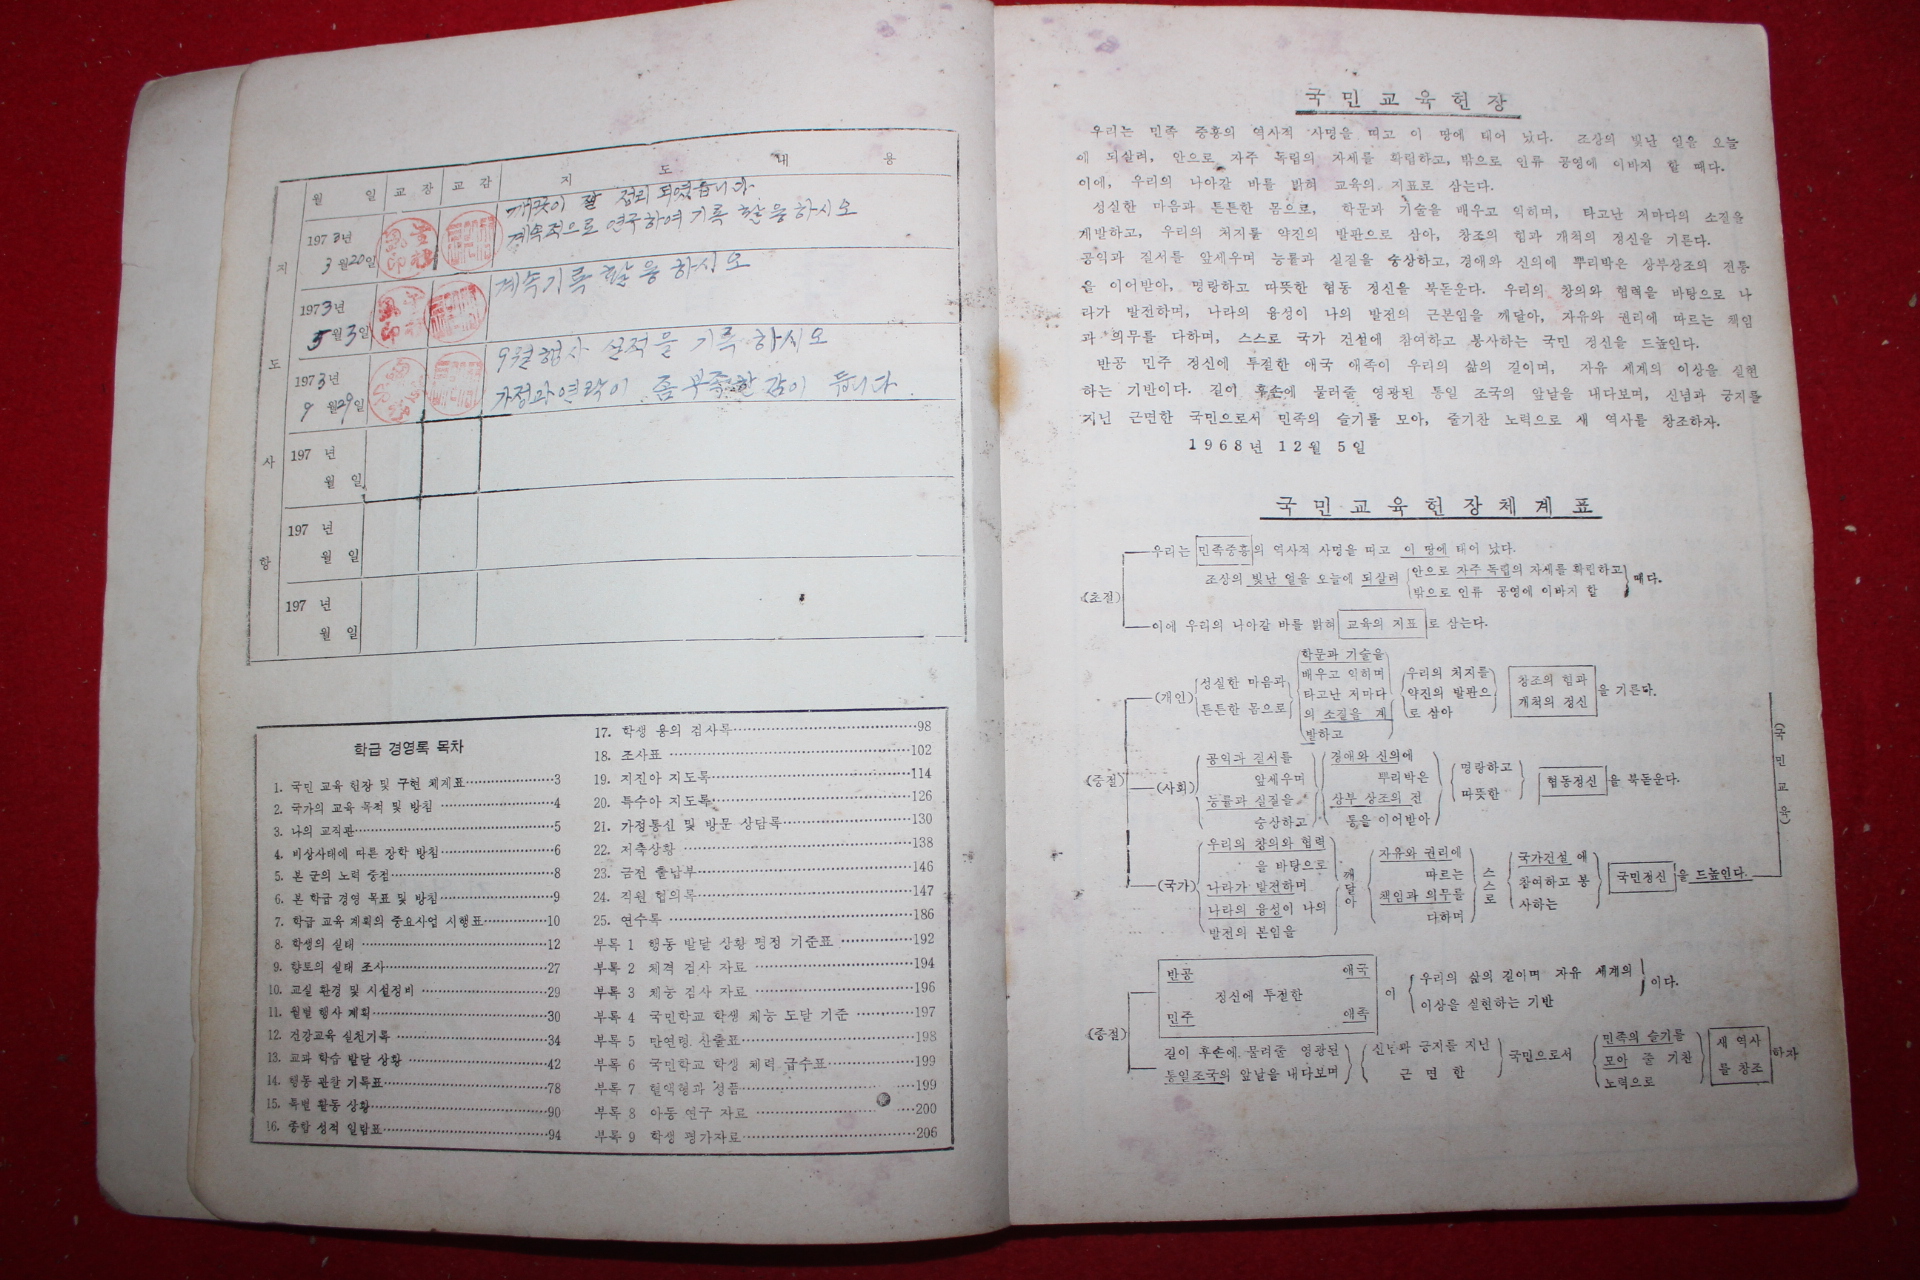 월 일 교장 교감 지도 내용
지도사항
1973년
3월20일
깨끗이 잘 정리 되였읍니다
계속적으로 연구하여 기록 활용하시오
1973년
5월3일
계속기록 활용하시오
1973년
9월29일
9월행사 실적을 기록하시오
가정과연락이 좀 부족한감이 듭니다.
197 년
월 일
197 년
월 일
197 년
월 일
학급 경영록 목차
1. 국민 교육 헌장 및 구현 체계표 3
2. 국가의 교육 목적 및 방침 4
3. 나의 교직관 5
4. 비상사태에 따른 장학 방침 6
5. 본 군의 노력 중점 8
6. 본 학급 경영 목표 및 방침 9
7. 학급 교육 계획의 중요사업 시행표 10
8. 학생의 실태 12
9. 향토의 실태 조사 27
10. 교실 환경 및 시설정비 29
11. 월별 행사 계획 30
12. 건강교육 실천기록 34
13. 교과 학습 발달 상황 42
14. 행동 관찰 기록표 78
15. 특별 활동 상황 90
16. 종합 성적 일람표 94
17. 학생 용의 검사록 98
18. 조사표 102
19. 지진아 지도록 114
20. 특수아 지도록 126
21. 가정통신 및 방문 상담록 130
22. 저축상황 138
23. 금전 출납부 146
24. 직원 협의록 147
25. 연수록 186
부록 1 행동 발달 상황 평정 기준표 192
부록 2 체격 검사 자료 194
부록 3 체능 검사 자료 196
부록 4 국민학교 학생 체능 도달 기준 197
부록 5 만연령 산출표 198
부록 6 국민학교 학생 체력 급수표 199
부록 7 혈액형과 성품 199
부록 8 아동 연구 자료 200
부록 9 학생 평가자료 206
국민교육헌장
우리는 민족 중흥의 역사적 사명을 띠고 이 땅에 태어 났다. 조상의 빛난 얼을 오늘
에 되살려, 안으로 자주 독립의 자세를 확립하고, 밖으로 인류 공영에 이바지 할 때다.
이에, 우리의 나아갈 바를 밝혀 교육의 지표로 삼는다.
성실한 마음과 튼튼한 몸으로, 학문과 기술을 배우고 익히며, 타고난 저마다의 소질을
계발하고, 우리의 처지를 약진의 발판으로 삼아, 창조의 힘과 개척의 정신을 기른다.
공익과 질서를 앞세우며 능률과 실질을 숭상하고, 경애와 신의에 뿌리박은 상부상조의 전통
을 이어받아, 명랑하고 따뜻한 협동 정신을 북돋운다. 우리의 창의와 협력을 바탕으로 나
라가 발전하며, 나라의 융성이 나의 발전의 근본임을 깨달아, 자유와 권리에 따르는 책임
과 의무를 다하며, 스스로 국가 건설에 참여하고 봉사하는 국민 정신을 드높인다.
반공 민주 정신에 투철한 애국 애족이 우리의 삶의 길이며, 자유 세계의 이상을 실현
하는 기반이다. 길이 후손에 물려줄 영광된 통일 조국의 앞날을 내다보며, 신념과 긍지를
지닌 근면한 국민으로서 민족의 슬기를 모아, 줄기찬 노력으로 새 역사를 창조하자.
1968년 12월 5일
국민교육헌장체계표
《초절》
우리는 민족중흥의 역사적 사명을 띠고 이 땅에 태어 났다.
조상의 빛난 얼을 오늘에 되살려 안으로 자주 독립의 자세를 확립하고 때다.
밖으로 인류 공영에 이바지 할
이에 우리의 나아갈 바를 밝혀 교육의 지표로 삼는다.
《중절》
(개인)
성실한 마음과
튼튼한 몸으로
학문과 기술을
배우고 익히며
타고난 저마다
의 소질을 계
발하고
우리의 처지를
약진의 발판으
로 삼아
창조의 힘과
개척의 정신
을 기른다.
(사회)
공익과 질서를
앞세우며
능률과 실질을
숭상하고
경애와 신의에
뿌리박은
상부 상조의 전
통을 이어받아
명랑하고
따뜻한
협동정신을 북돋운다.
(국가)
우리의 창의와 협력
을 바탕으로
나라가 발전하며
나라의 융성이 나의
발전의 본임을
깨달아
자유와 권리에
따르는
책임과 의무를
다하며
스스로
국가건설 에
참여하고 봉
사하는
국민정신을 드높인다.
(국민교육)
《종절》
반공 애국
정신에 투철한
민주 애족
이
우리의 삶의 길이며 자유 세계의
이상을 실현하는 기반
이다.
길이 후손에 물려줄 영광된
통일조국의 앞날을 내다보며
신념과 긍지를 지닌
근면한
국민으로서
민족의 슬기를
모아 줄 기찬
노력으로
새 역사
를 창조
하자